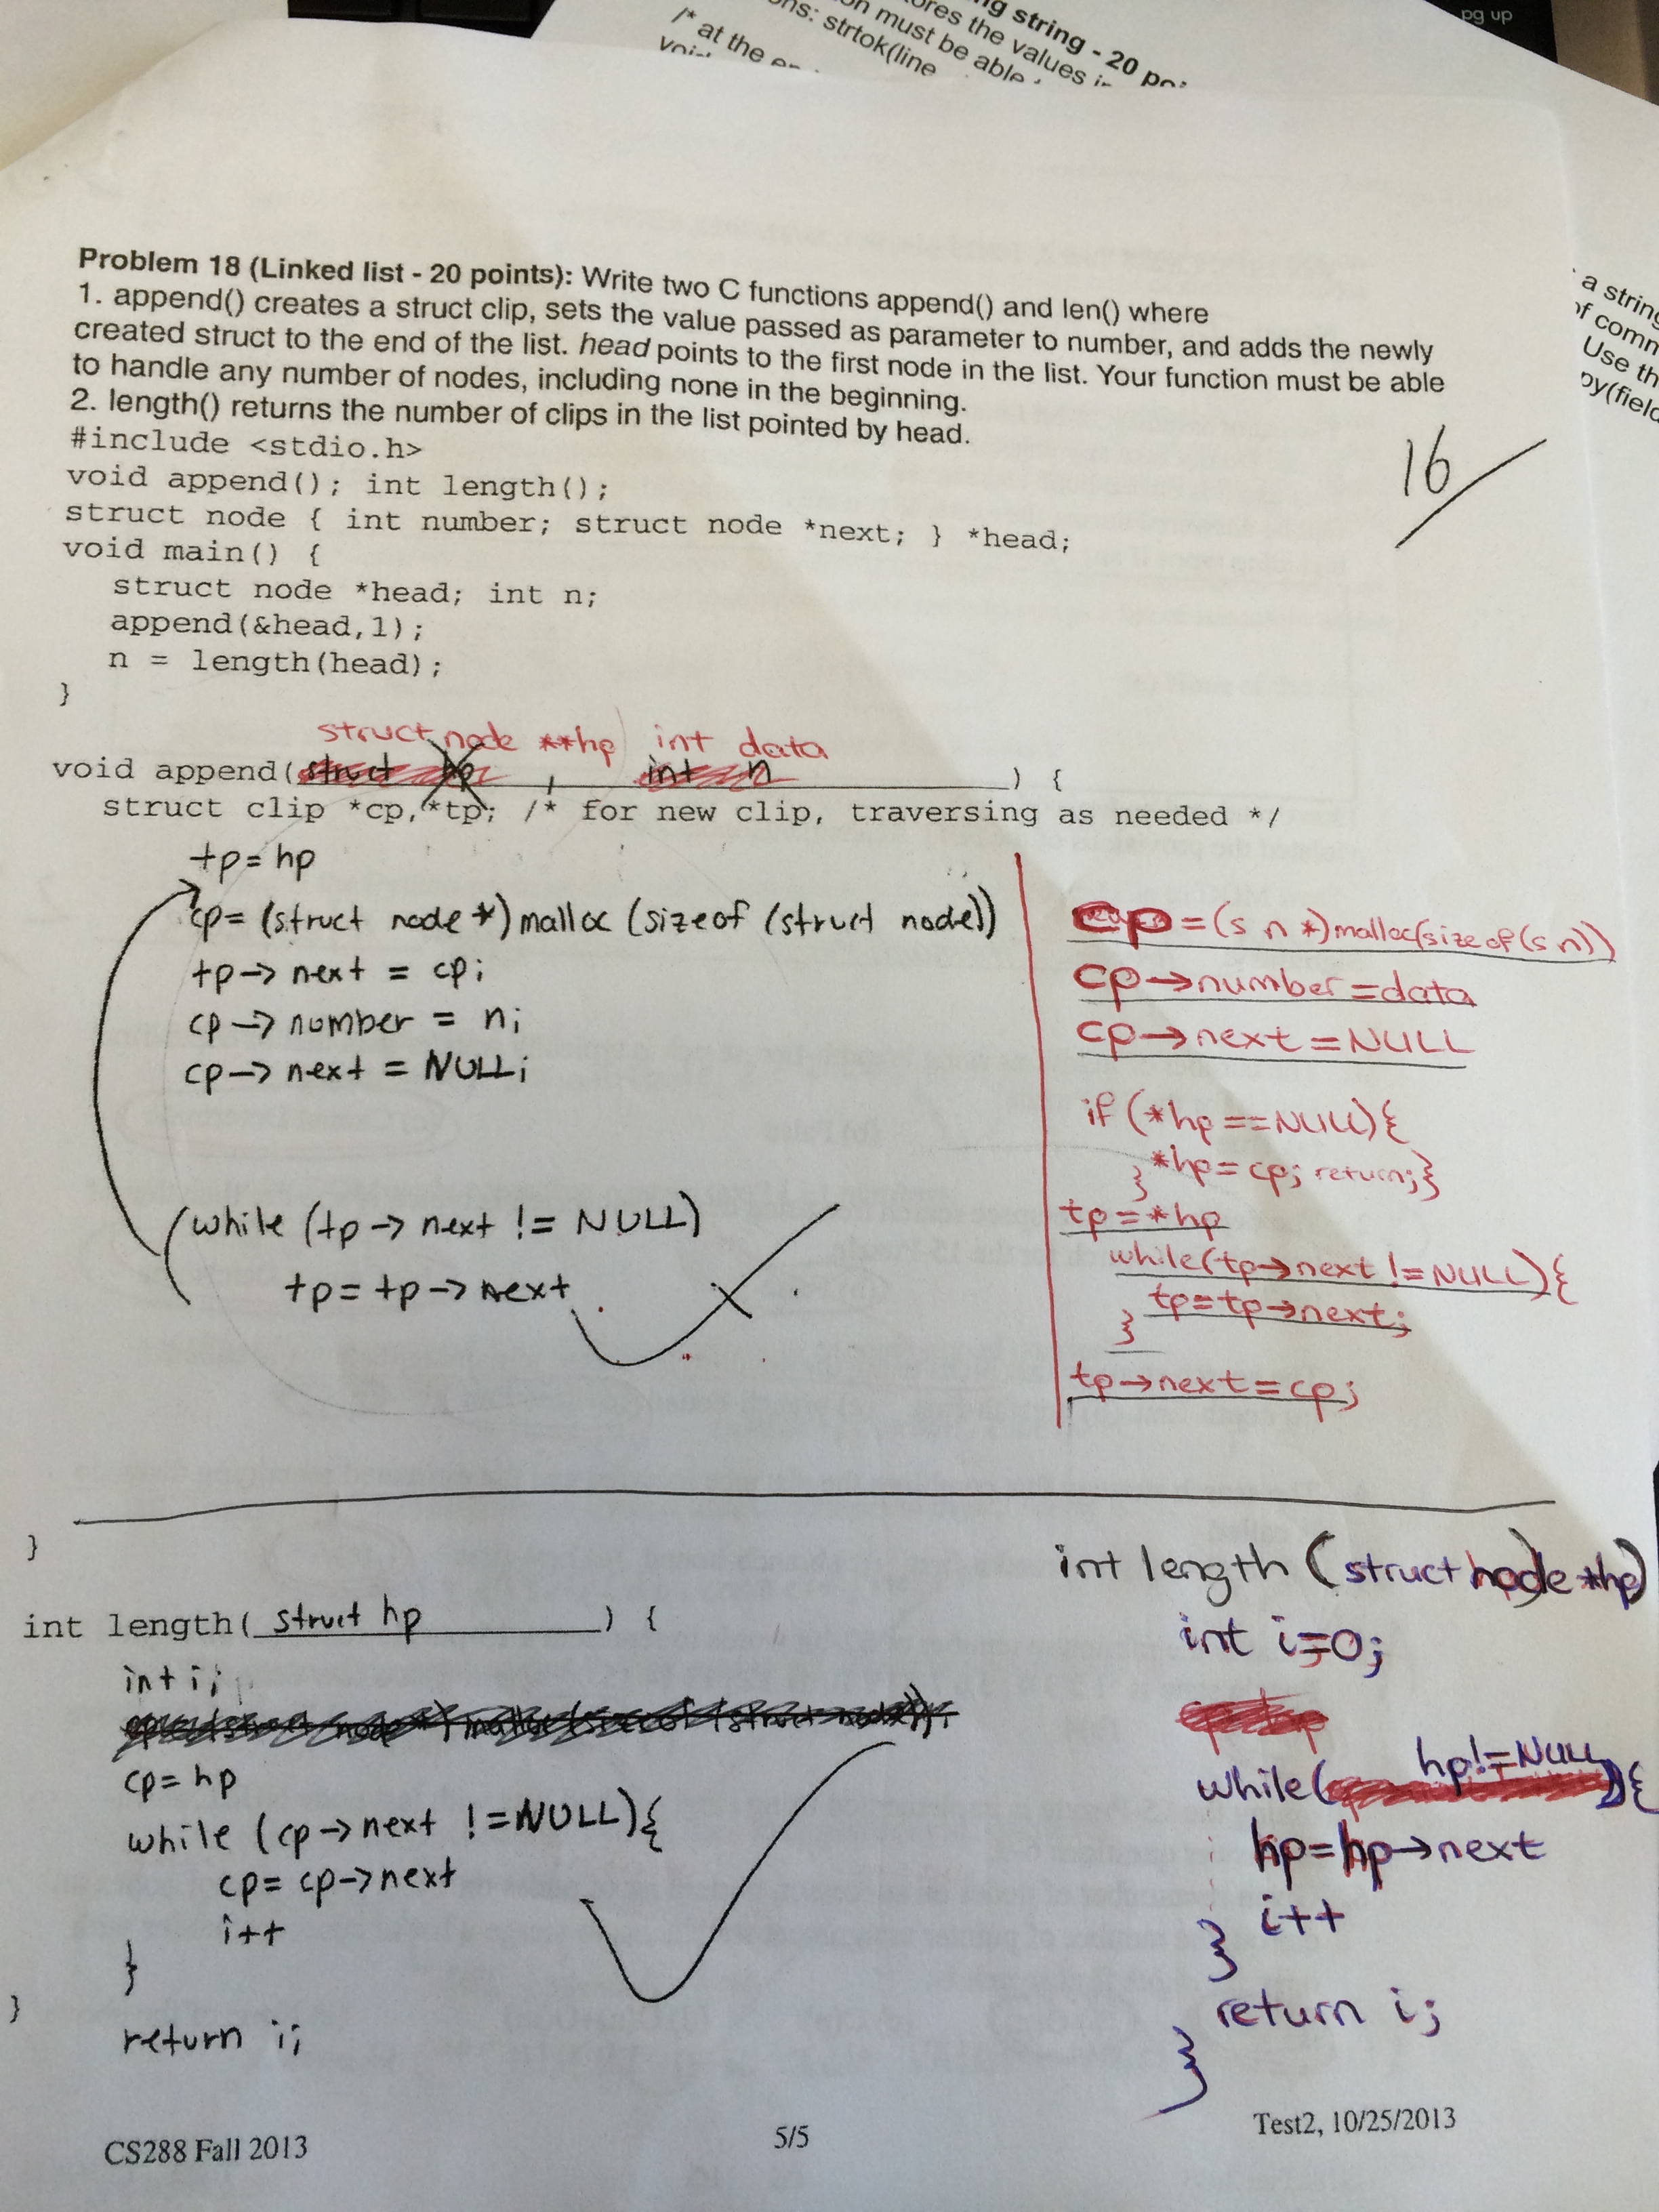 pg up
ng string - 20 po
ores the values in
on must be able
ons: strtok(line
/* at the en
void
a string
of comm
Use th
py(field
Problem 18 (Linked list - 20 points): Write two C functions append() and len() where
1. append() creates a struct clip, sets the value passed as parameter to number, and adds the newly
created struct to the end of the list. head points to the first node in the list. Your function must be able
to handle any number of nodes, including none in the beginning.
2. length() returns the number of clips in the list pointed by head.
16
#include <stdio.h>
void append(); int length();
struct node { int number; struct node *next; } *head;
void main() {
struct node *head; int n;
append(&head,1);
n = length(head);
}
struct node **hp int data
void append(struct hp, int n) {
struct clip *cp,*tp; /* for new clip, traversing as needed */
tp = hp
cp= (struct node *) malloc (sizeof (struct node))
tp-> next = cp;
cp-> number = n;
cp-> next = NULL;
(while (tp-> next != NULL)
tp = tp-> next
cp=(s n *)malloc(sizeof(s n))
cp->number=data
cp->next=NULL
if (*hp ==NULL){
} *hp=cp; return;}
tp=*hp
while(tp->next !=NULL){
tp=tp->next;
}
tp->next=cp;
}
int length( struct hp ) {
int i;
cp= hp
while (cp->next !=NULL){
cp= cp->next
i++
}
}
return i;
int length (struct node *hp)
int i=0;
while( hp!=NULL ){
hp=hp->next
i++
}
return i;
}
CS288 Fall 2013
5/5
Test2, 10/25/2013